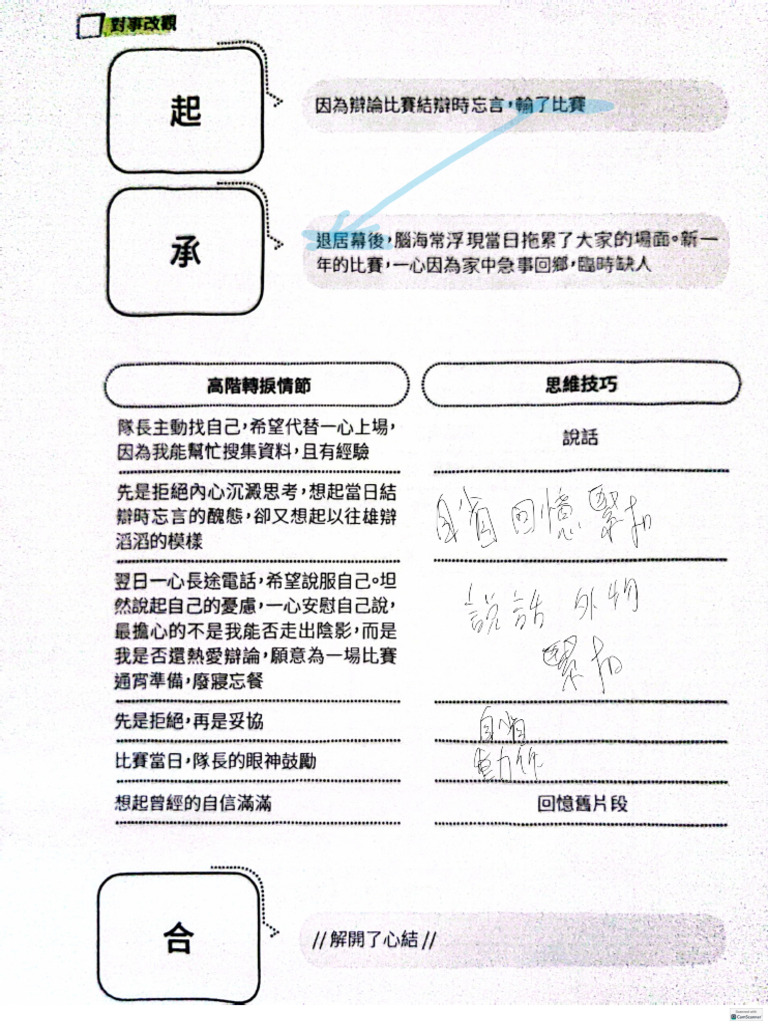 對事改觀
起
因為辯論比賽結辯時忘言，輸了比賽
承
退居幕後，腦海常浮現當日拖累了大家的場面。新一
年的比賽，一心因為家中急事回鄉，臨時缺人
高階轉捩情節
思維技巧
隊長主動找自己，希望代替一心上場，
因為我能幫忙搜集資料，且有經驗
說話
先是拒絕內心沉澱思考，想起當日結
辯時忘言的醜態，卻又想起以往雄辯
滔滔的模樣
自省 回憶 緊扣
翌日一心長途電話，希望說服自己。坦
然說起自己的憂慮，一心安慰自己說，
最擔心的不是我能否走出陰影，而是
我是否還熱愛辯論，願意為一場比賽
通宵準備，廢寢忘餐
說話 外物
緊扣
先是拒絕，再是妥協
自省
比賽當日，隊長的眼神鼓勵
動作
想起曾經的自信滿滿
回憶舊片段
合
//解開了心結//
CamScanner